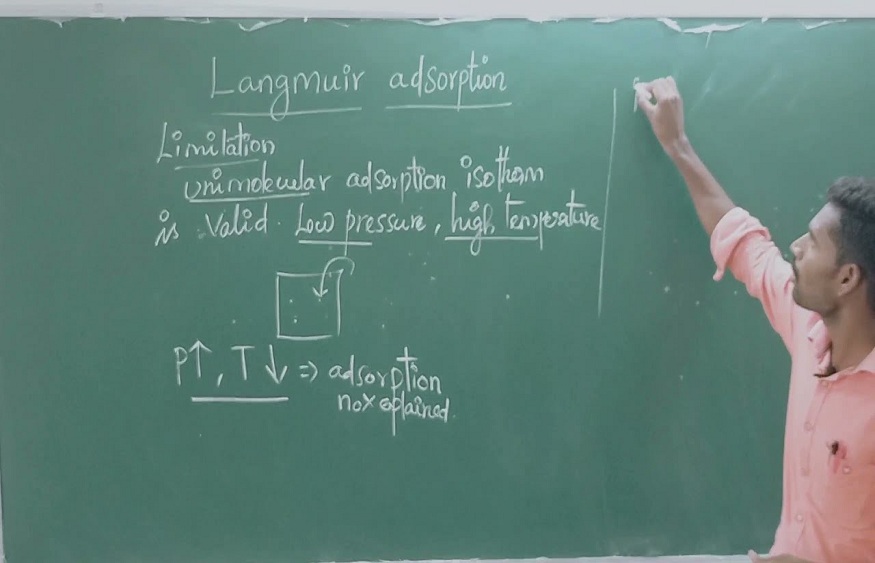 Langmuir adsorption
Limitation
unimolecular adsorption isotherm
is valid. Low pressure, high temperature
P↑, T↓ ⇒ adsorption
not explained.